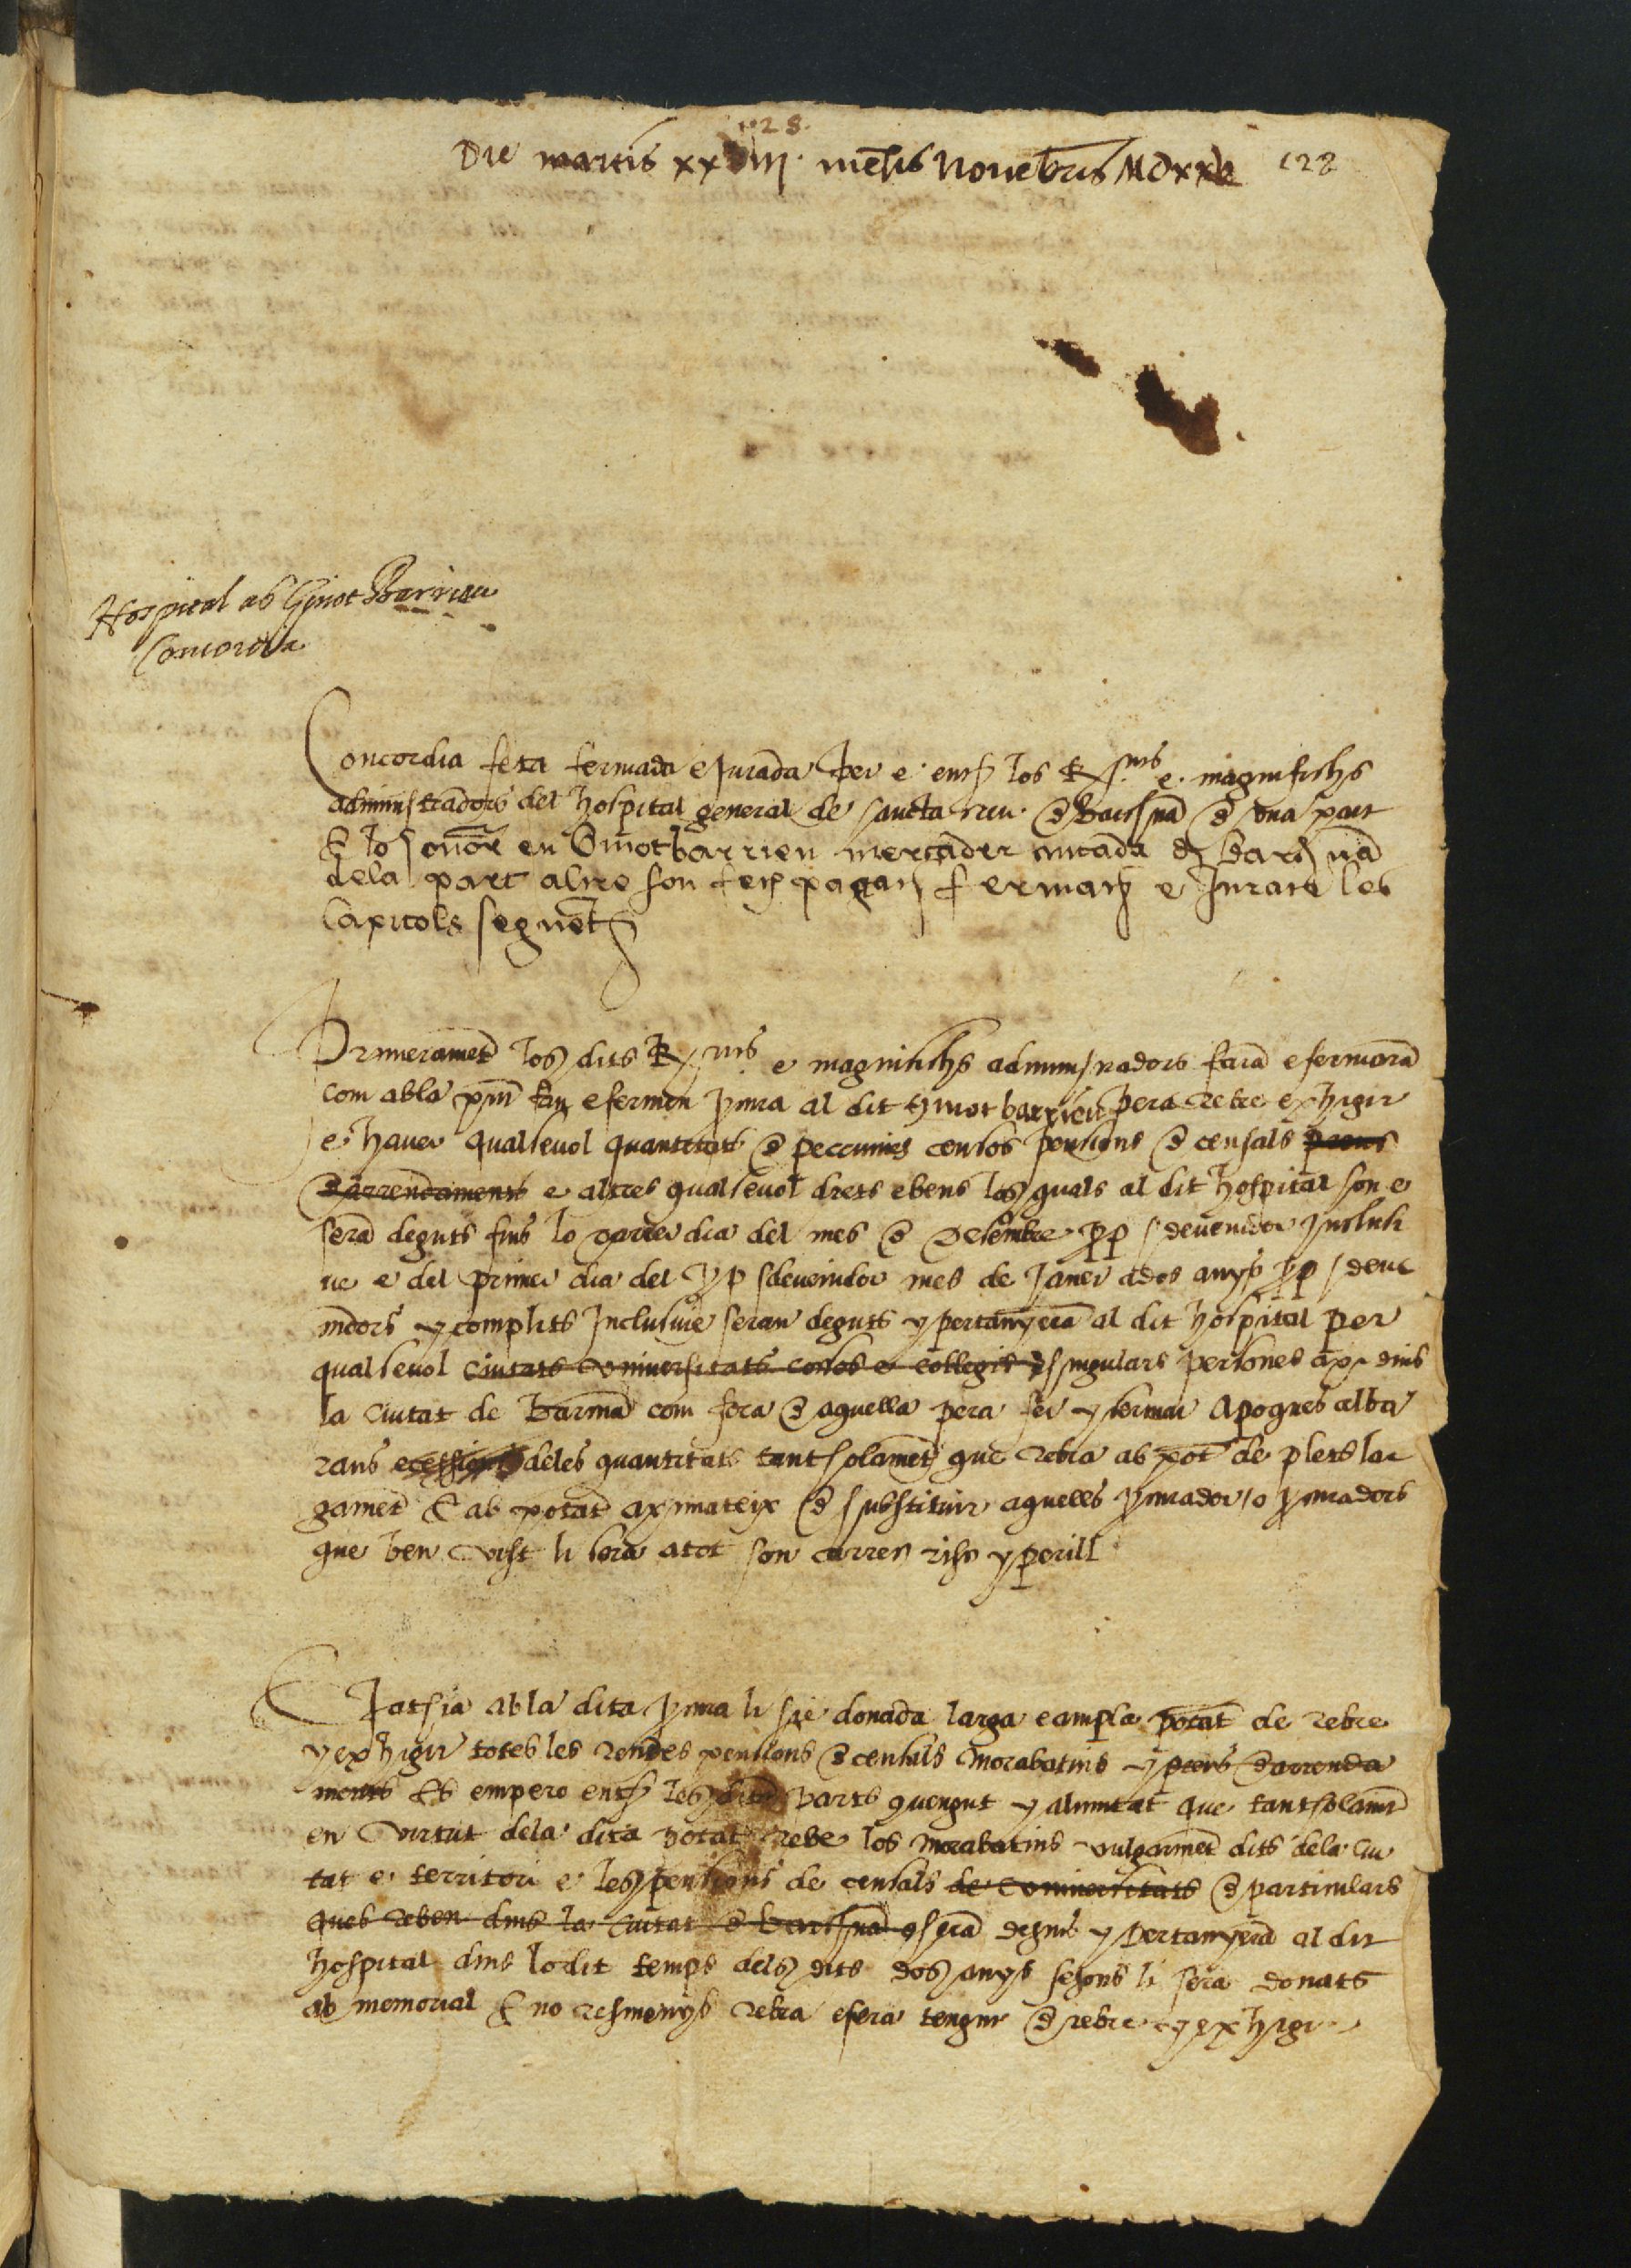 128.
Die martis xxviii. mēsis Novēbris MDxx 128
Hospital ab Ginot Barrieu
Concordia
Concordia feta fermada e Jurada per e entre los R.mis e. magnifichs
administradors del hospital general de sancta creu. de Barchna de una part
E lo honor en Ginot barrieu mercader ciutada de Barchna
dela part altre son fets pagats fermats e Jurats les
Capitols seguēts
Primeramēt los dits R.mis e magnifichs administradors farā e fermarā
com abla pnt fan e fermen pcura al dit ginot barrieu pera rebre exhigir
e haver qualsevol quantitats de peccunies censos pensions de censals preus
darrendaments e altres qualsevol drets e bens los quals al dit hospital son e
serā deguts fins lo darrer dia del mes de Desembre pp sdevenidor Inclusi
ve e del primer dia del pp sdevenidor mes de Janer a dos anys pp sdeve
nidors y complits Inclusive seran deguts y pertanyerā al dit hospital per
qualsevol ciutats universitats cossos e collegis singulars persones axi dins
la ciutat de Barnā com fora de aquella pera fer y fermar apoques alba
rans e cessions deles quantitats tantsolamēt que rebra ab pot de plets lar
gamēt E ab potat aximateix de substituir aquells pcurador /o pcuradors
que ben vist li sera a tot son carrec risc y perill
E Jatsia abla dita pcura li sie donada larga e ampla potat de rebre
y exhigir totes les rendes pensions de censals morabatins y preus darrenda
ments Es empero entre les dites parts convengut y alimitat que tantsolamēt
en virtut dela dita potat rebe los morabatins vulgarmēt dits dela ciu
tat e territori e les pensions de censals de universitats de particulars
ques reben dins la ciutat de barchna q serā deguts y pertanyerā al dit
hospital dins lo dit temps dels dits dos anys segons li sera donats
ab memorial E no resmenys rebra e sera tengut de rebre y exhigir